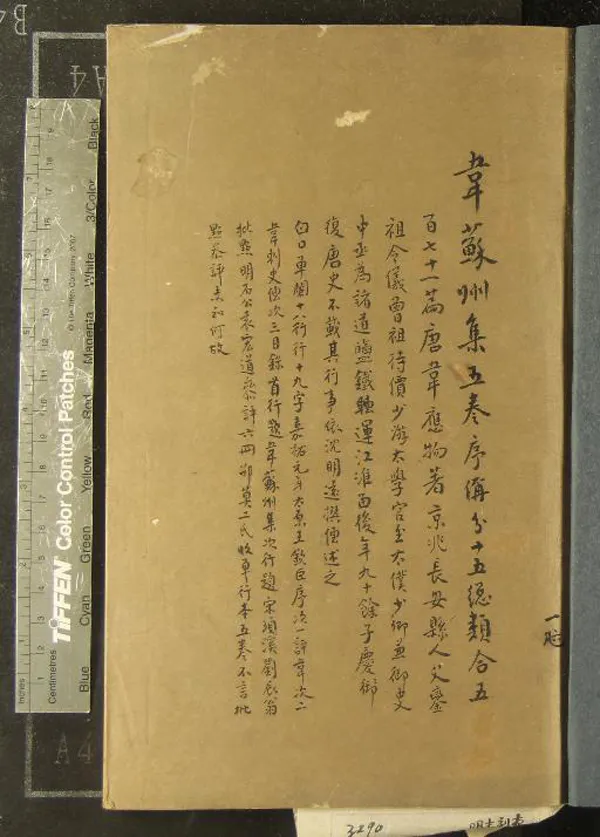 韋蘇州集五卷序偁分十五總類合五
百七十一萹唐韋應物著京兆長安縣人父鑾
祖令儀曾祖待價少游太學官至太僕少卿兼御史
中丞為諸道鹽鐵轉運江淮畱後年九十餘子慶
復唐史不載其行事依沈明遠撰傳述之
白口單闌十八行行十九字嘉祐元年太原王欽臣序次一評韋次二
韋刺史傳次三目錄首行題韋蘇州集次行題宋須溪劉辰翁
批點明石公袁宏道參評六冊邵莫二氏收單行本五卷不言批
點參評未知何故
TIFFEN Color Control Patches
© The Tiffen Company, 2007
Inches
Centimetres
Blue Cyan Green Yellow Red Magenta White 3/Color Black
A4
A4
B4
3290